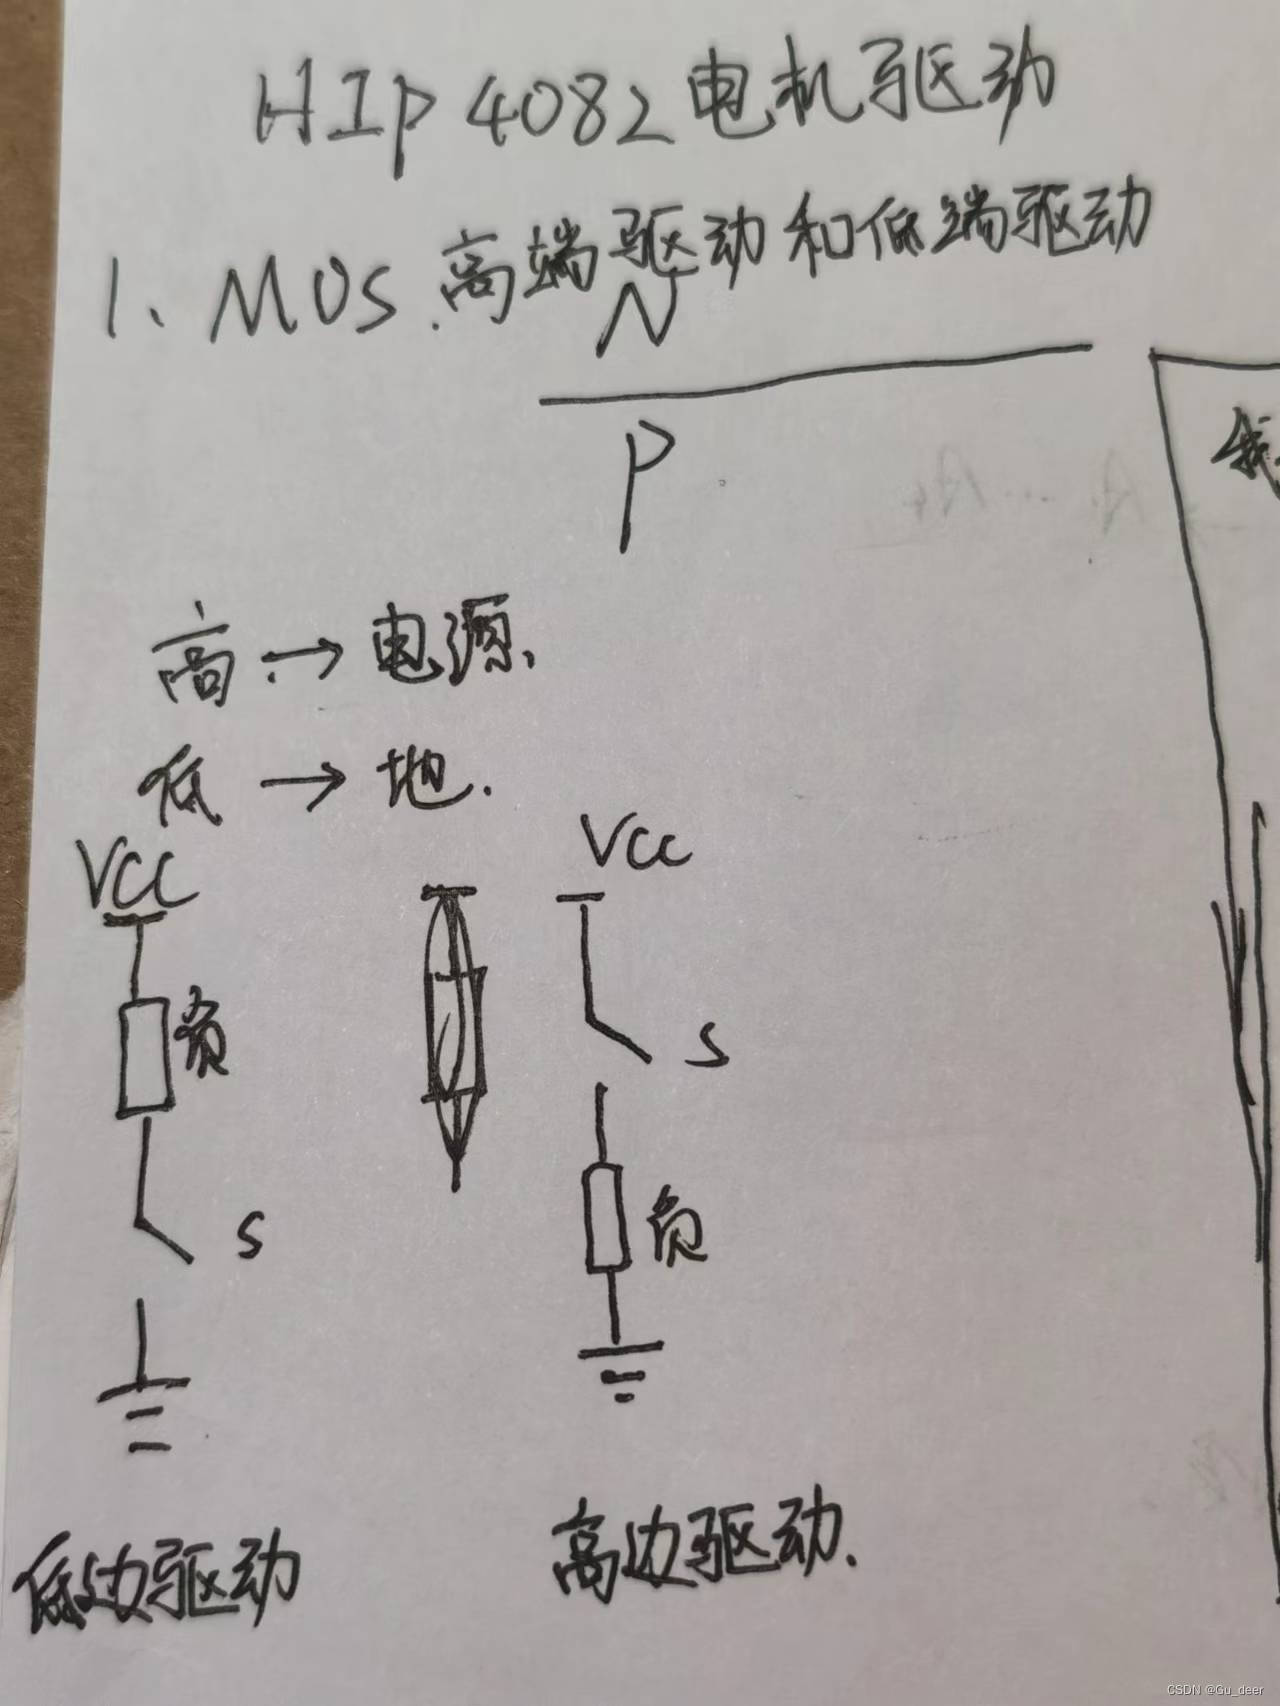 HIP4082电机驱动
1、MOS.高端驱动和低端驱动
N
P
我
高→电源.
低→地.
VCC
负
S
VCC
S
负
低边驱动
高边驱动.
CSDN @Gu_deer